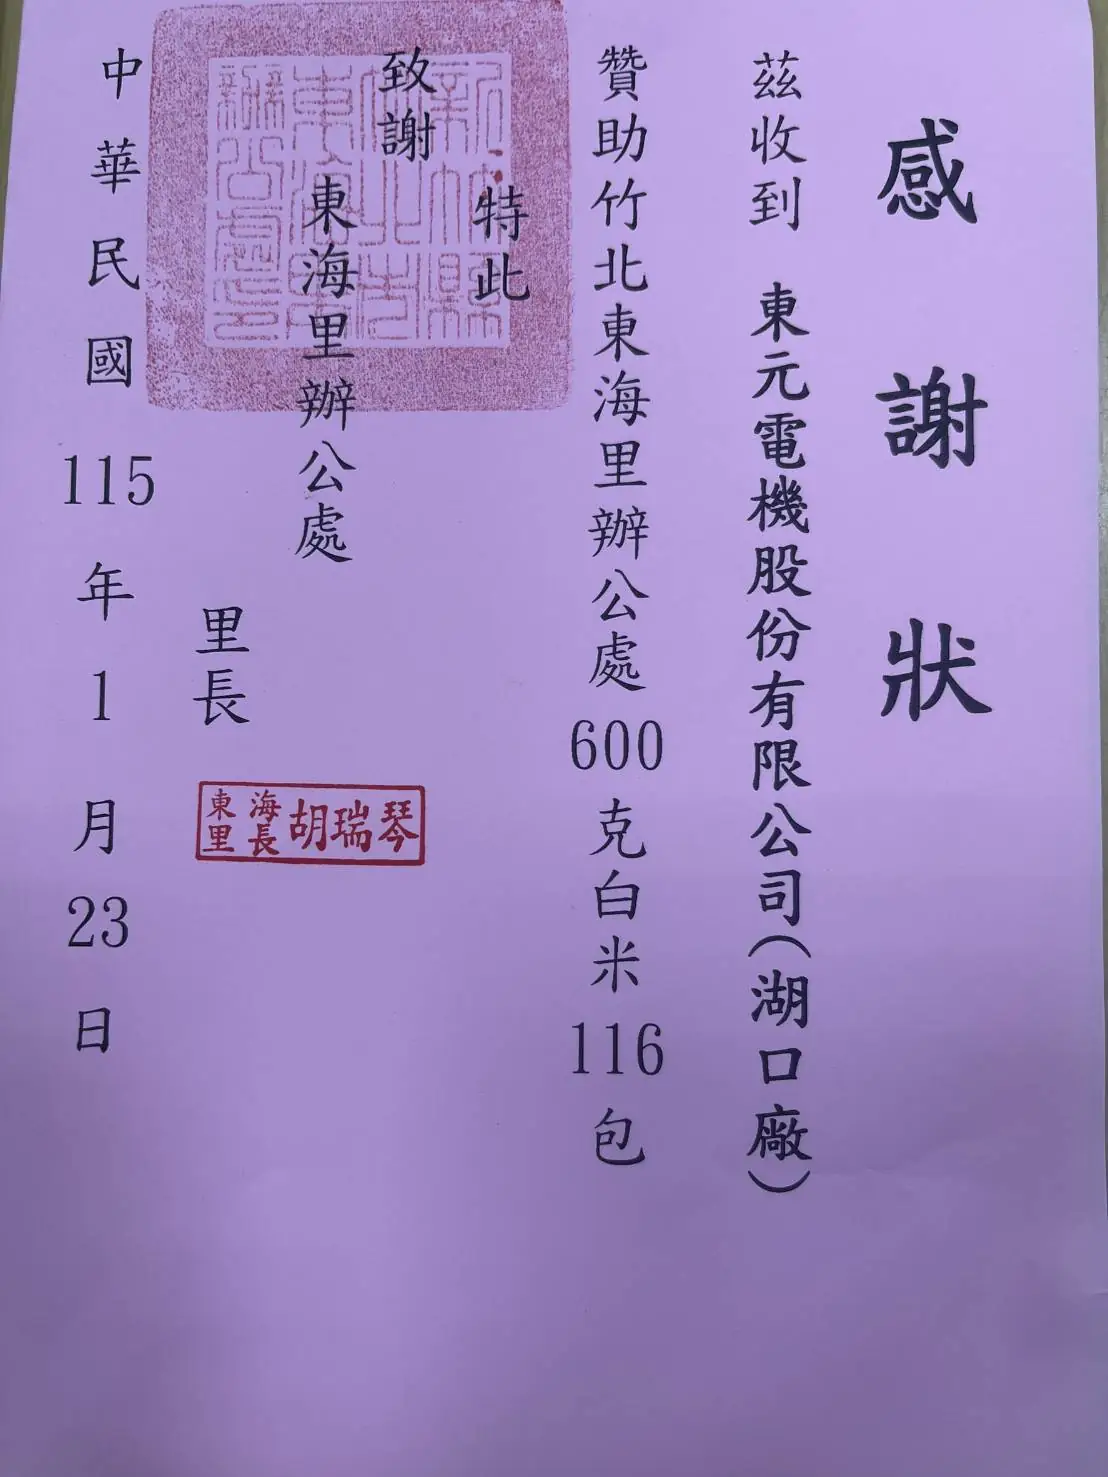 感謝狀
茲收到 東元電機股份有限公司(湖口廠)
贊助竹北東海里辦公處600克白米116包
特此
致謝
東海里辦公處
里長
東海里長 胡瑞琴
中華民國115年1月23日
新竹縣
竹北市
東海里
辦公處印